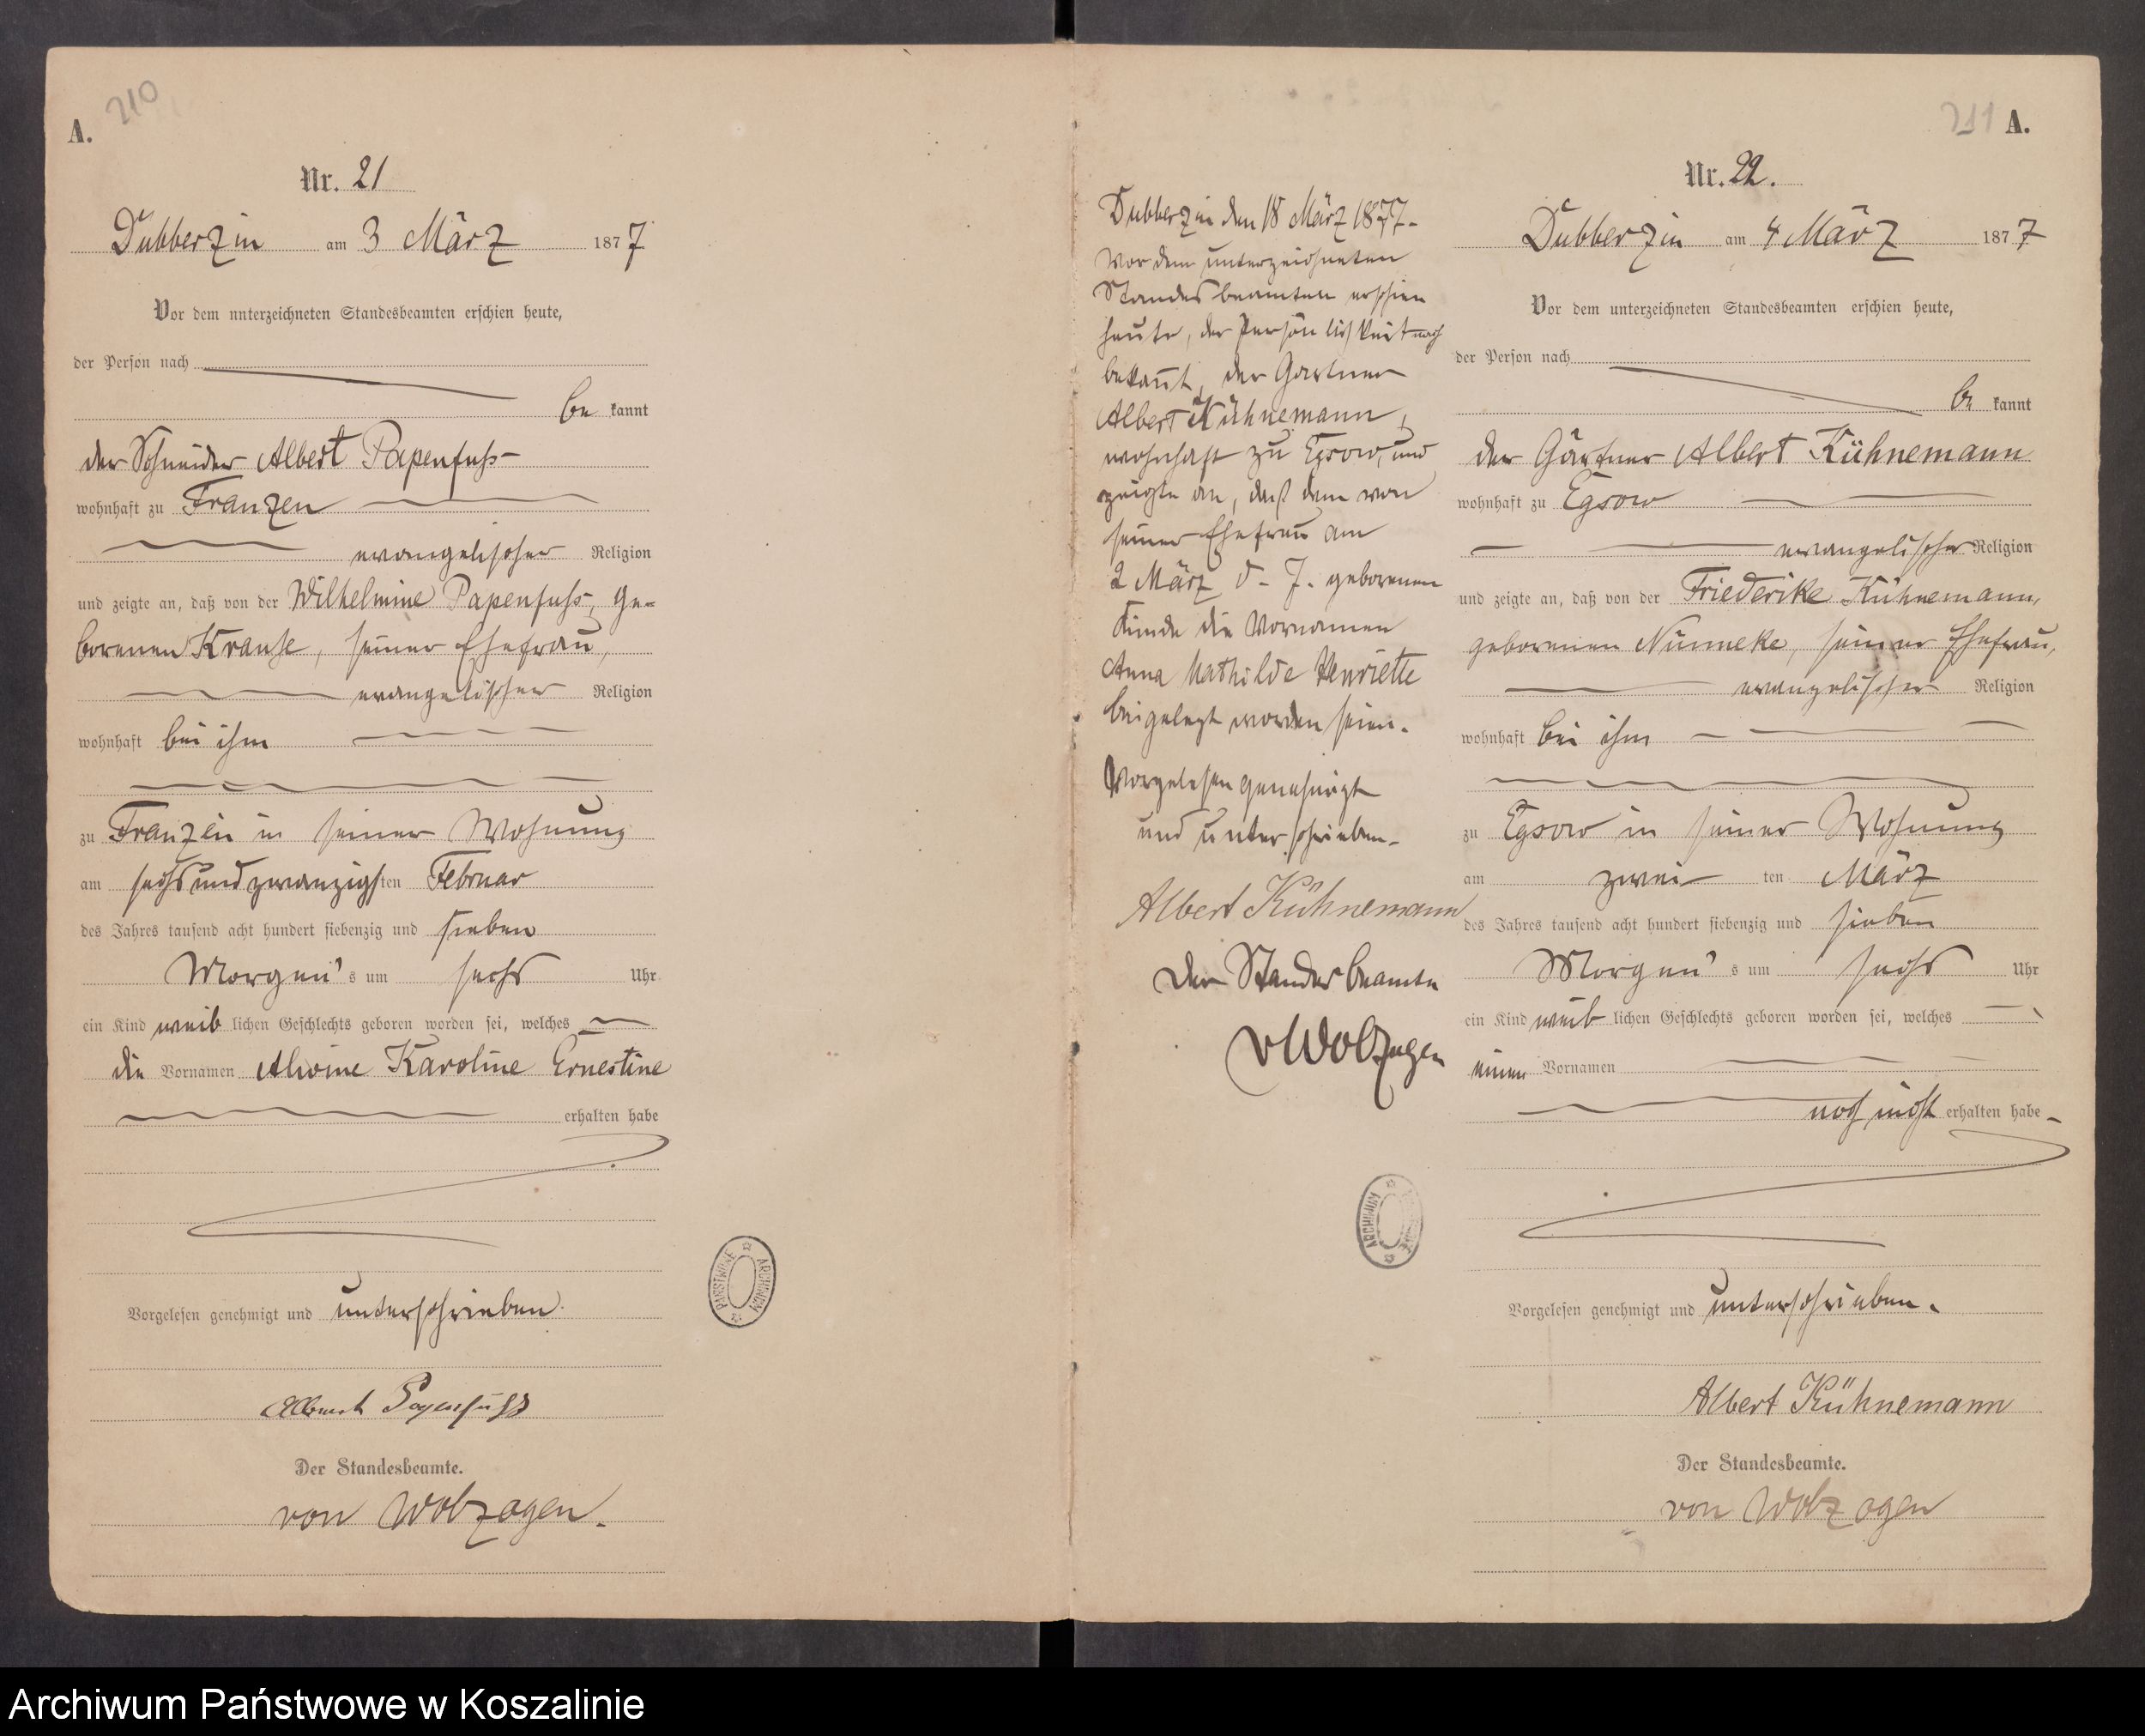 A.
210
Nr. 21
Dubberzin am 3 März 1877
Vor dem unterzeichneten Standesbeamten erschien heute,
der Person nach
be kannt
der Schneider Albert Papenfuss
wohnhaft zu Franzen
evangelischer Religion
und zeigte an, daß von der Wilhelmine Papenfuss, ge-
borenen Krause, seiner Ehefrau,
evangelischer Religion
wohnhaft bei ihm
zu Franzen in seiner Wohnung
am sechsundzwanzigsten Februar
des Jahres tausend acht hundert siebenzig und sieben
Morgen's um sechs Uhr
ein Kind weiblichen Geschlechts geboren worden sei, welches
die Vornamen Alwine Karoline Ernestine
erhalten habe
Vorgelesen genehmigt und unterschrieben.
Albert Papenfuss
Der Standesbeamte.
von Wolzogen.
ARCHIWUM PAŃSTWOWE
Dubberzin den 18 März 1877.
Vor dem unterzeichneten
Standesbeamten erschien
heute, der Persönlichkeit nach
bekannt, der Gärtner
Albert Kühnemann,
wohnhaft zu Egsow, und
zeigte an, daß dem von
seiner Ehefrau am
2 März d. J. geborenen
Kinde die Vornamen
Anna Mathilde Henriette
beigelegt worden seien.
Vorgelesen genehmigt
und unterschrieben.
Albert Kühnemann
Der Standesbeamte
vWolzogen
ARCHIWUM
211 A.
Nr. 22.
Dubberzin am 4 März 1877
Vor dem unterzeichneten Standesbeamten erschien heute,
der Person nach
be kannt
der Gärtner Albert Kühnemann
wohnhaft zu Egsow
evangelischer Religion
und zeigte an, daß von der Friederike Kühnemann,
geborenen Nünneke, seiner Ehefrau,
evangelischer Religion
wohnhaft bei ihm
zu Egsow in seiner Wohnung
am zwei ten März
des Jahres tausend acht hundert siebenzig und sieben
Morgen's um sechs Uhr
ein Kind weiblichen Geschlechts geboren worden sei, welches
einen Vornamen
noch nicht erhalten habe
Vorgelesen genehmigt und unterschrieben.
Albert Kühnemann
Der Standesbeamte.
von Wolzogen
Archiwum Państwowe w Koszalinie